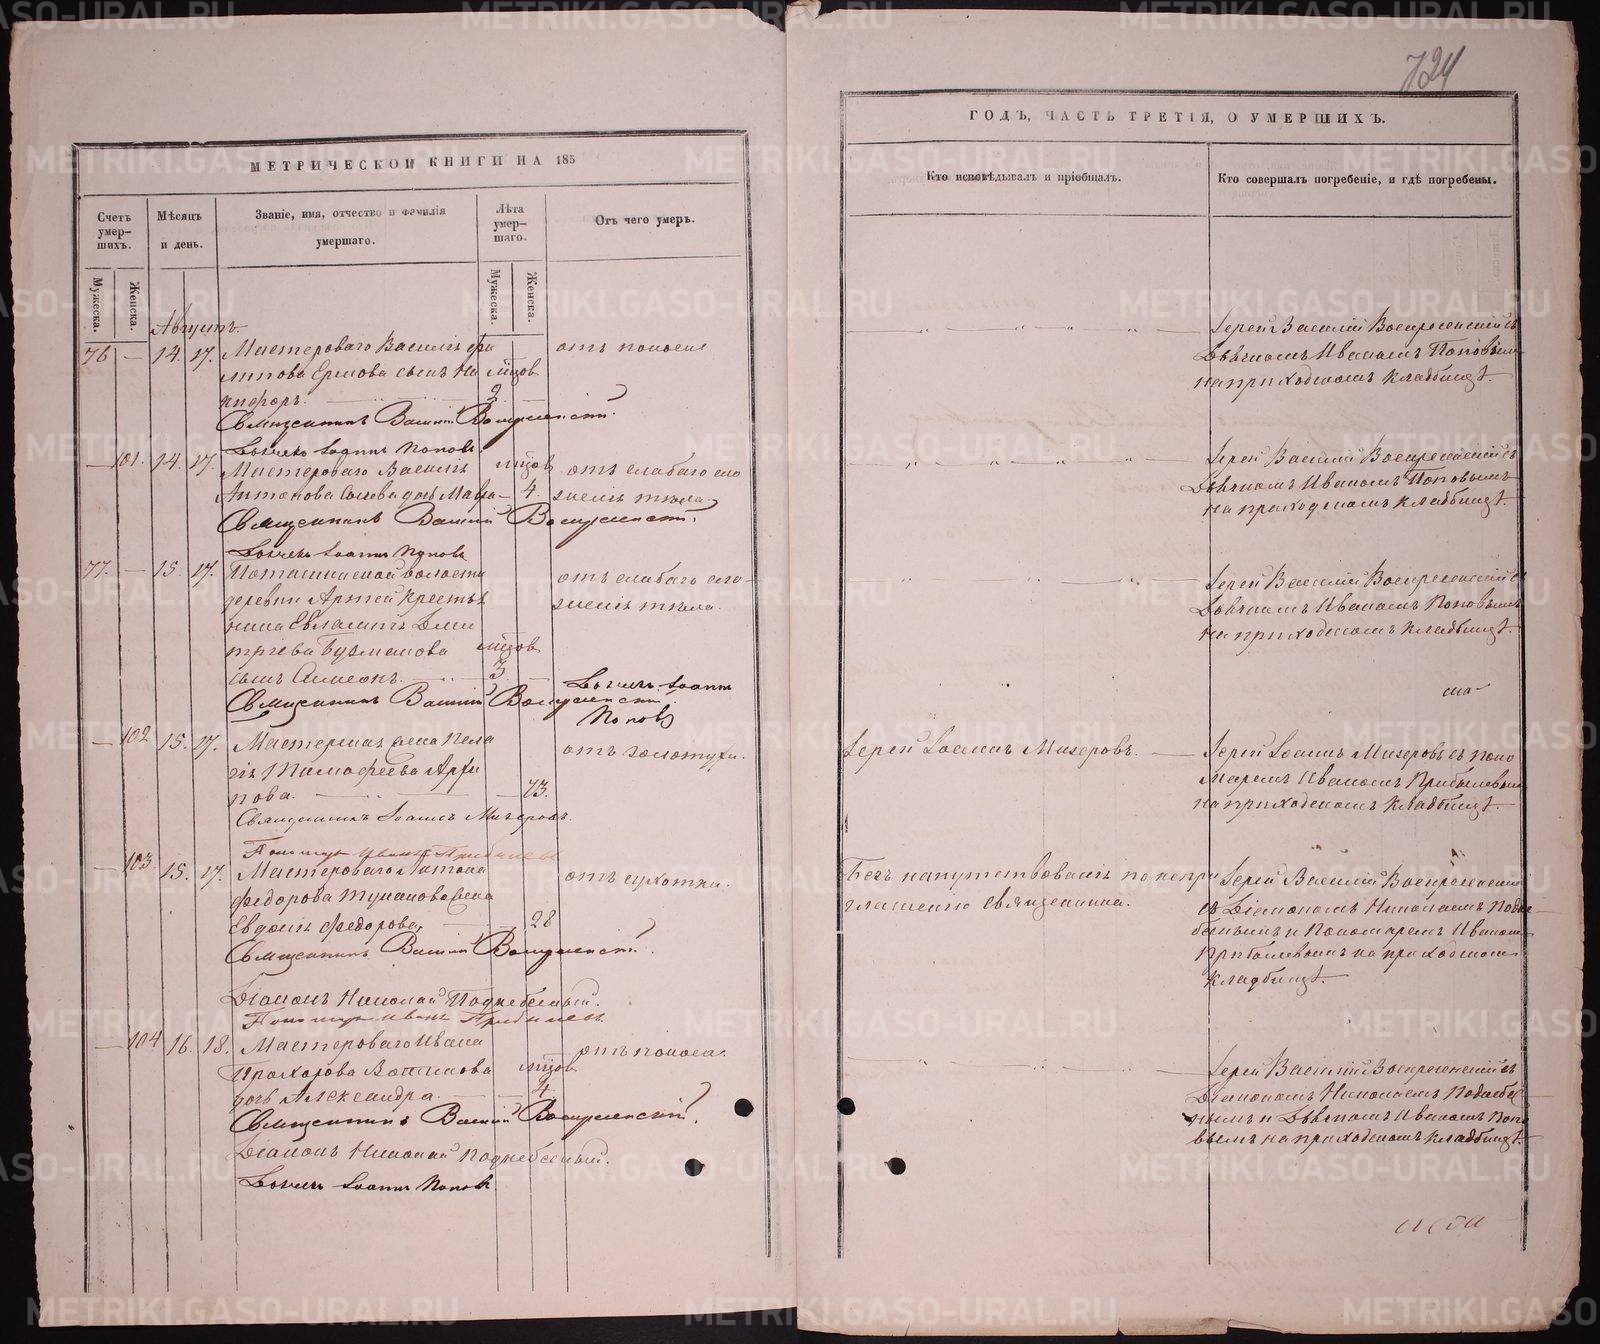 724
МЕТРИЧЕСКОЙ КНИГИ НА 185
ГОДЪ, ЧАСТЬ ТРЕТІЯ, О УМЕРШИХЪ.
Счетъ умер-шихъ.
Мѣсяцъ и день.
Званіе, имя, отчество и фамилія умершаго.
Лѣта умер-шаго.
Отъ чего умеръ.
Кто исповѣдывалъ и пріобщалъ.
Кто совершалъ погребеніе, и гдѣ погребены.
Мужеска.
Женска.
Мужеска.
Женска.
Августъ.
76 — 14. 17. Мастероваго Василія Фи
липпова сынъ Ни
кифоръ.
мѣсяцов
отъ поноса
Священникъ Василій Воскресенскій.
Дьячекъ Іоаннъ Поповъ
Іерей Василій Воскресенскій съ
Дьячкомъ Иваномъ Поповымъ
на приходскомъ кладбищѣ.
— 101. 14. 17. Мастероваго Василія
Антонова дочь
4.
отъ слабаго сло
женія тѣла.
Священникъ Василій Воскресенскій.
Дьячекъ Іоаннъ Поповъ
Іерей Василій Воскресенскій съ
Дьячкомъ Иваномъ Поповымъ
на приходскомъ кладбищѣ.
77. — 15. 17. Поташинской волости
деревни Артей крестья
нина Евлампія Дми
тріева Бузманова
сынъ Симеонъ.
3.
отъ слабаго сло-
женія тѣла.
Священникъ Василій Воскресенскій.
Дьячекъ Іоаннъ
Поповъ
Іерей Василій Воскресенскій съ
Дьячкомъ Иваномъ Поповымъ
на приходскомъ кладбищѣ.
— 102 15. 17. Мастерская жена Пела
гія Тимофеева
пова.
73.
отъ золотухи.
Священникъ Іоаннъ Мизеровъ.
Пономарь Иванъ Прибылевъ
Іерей Іоаннъ Мизеровъ.
Іерей Іоаннъ Мизеровъ съ Поно
маремъ Иваномъ Прибылевым
на приходскомъ кладбищѣ.
— 103 15. 17. Мастероваго Антона
Федорова Туманова жена
Евдокія Федорова,
28
отъ чахотки.
Священникъ Василій Воскресенскій.
Діаконъ Николай Поднебесный.
Пономарь Иванъ Прибылевъ
Безъ напутствованія по непри
глашенію священника.
Іерей Василій Воскресенскій
съ Діакономъ Николаемъ Подне
беснымъ и Пономаремъ Иваномъ
Прибылевымъ на приходском
кладбищѣ.
— 104 16. 18. Мастероваго Ивана
Прохорова
дочь Александра.
мѣсяцов
4
отъ поноса.
Священникъ Василій Воскресенскій.
Діаконъ Николай Поднебесный.
Дьячекъ Іоаннъ Поповъ
Іерей Василій Воскресенскій съ
Діакономъ Николаемъ Поднебес
нымъ и Дьячкомъ Иваномъ Попо
вымъ на приходскомъ кладбищѣ.
METRIKI.GASO-URAL.RU